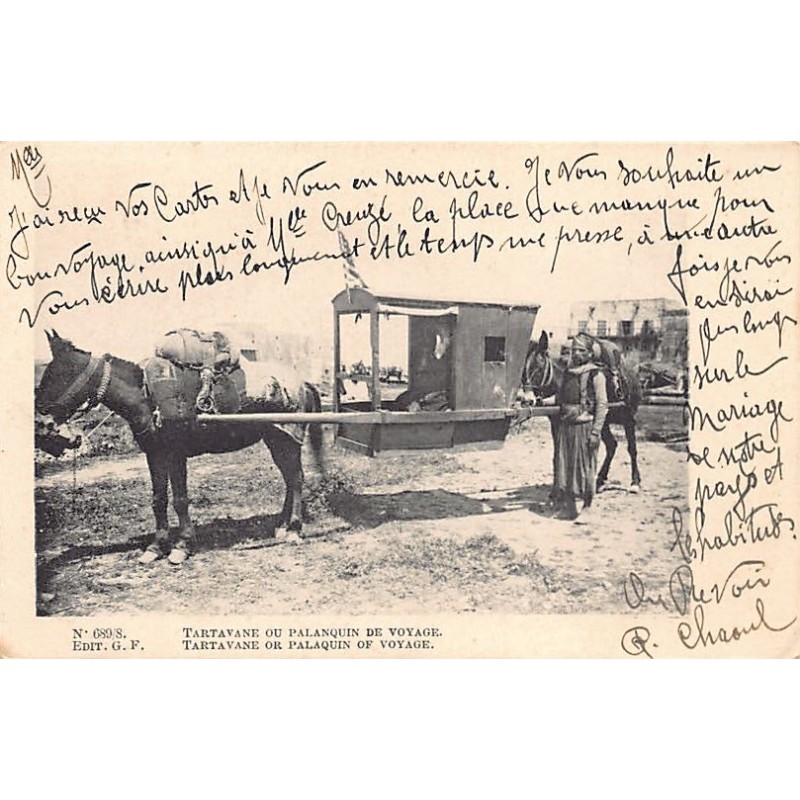 Mlle
J'ai reçu vos Cartes et je vous en remercie. Je vous souhaite un
bon voyage, ainsi qu'à Mlle Creuzé, la place me manque pour
vous écrire plus longuement et le temps me presse, à une autre
fois je vous
en dirai
plus long
sur le
Mariage
de notre
pays et
les habitudes.
Au Revoir
P. Chaoul
N° 689/S. TARTAVANE OU PALANQUIN DE VOYAGE.
EDIT. G. F. TARTAVANE OR PALAQUIN OF VOYAGE.